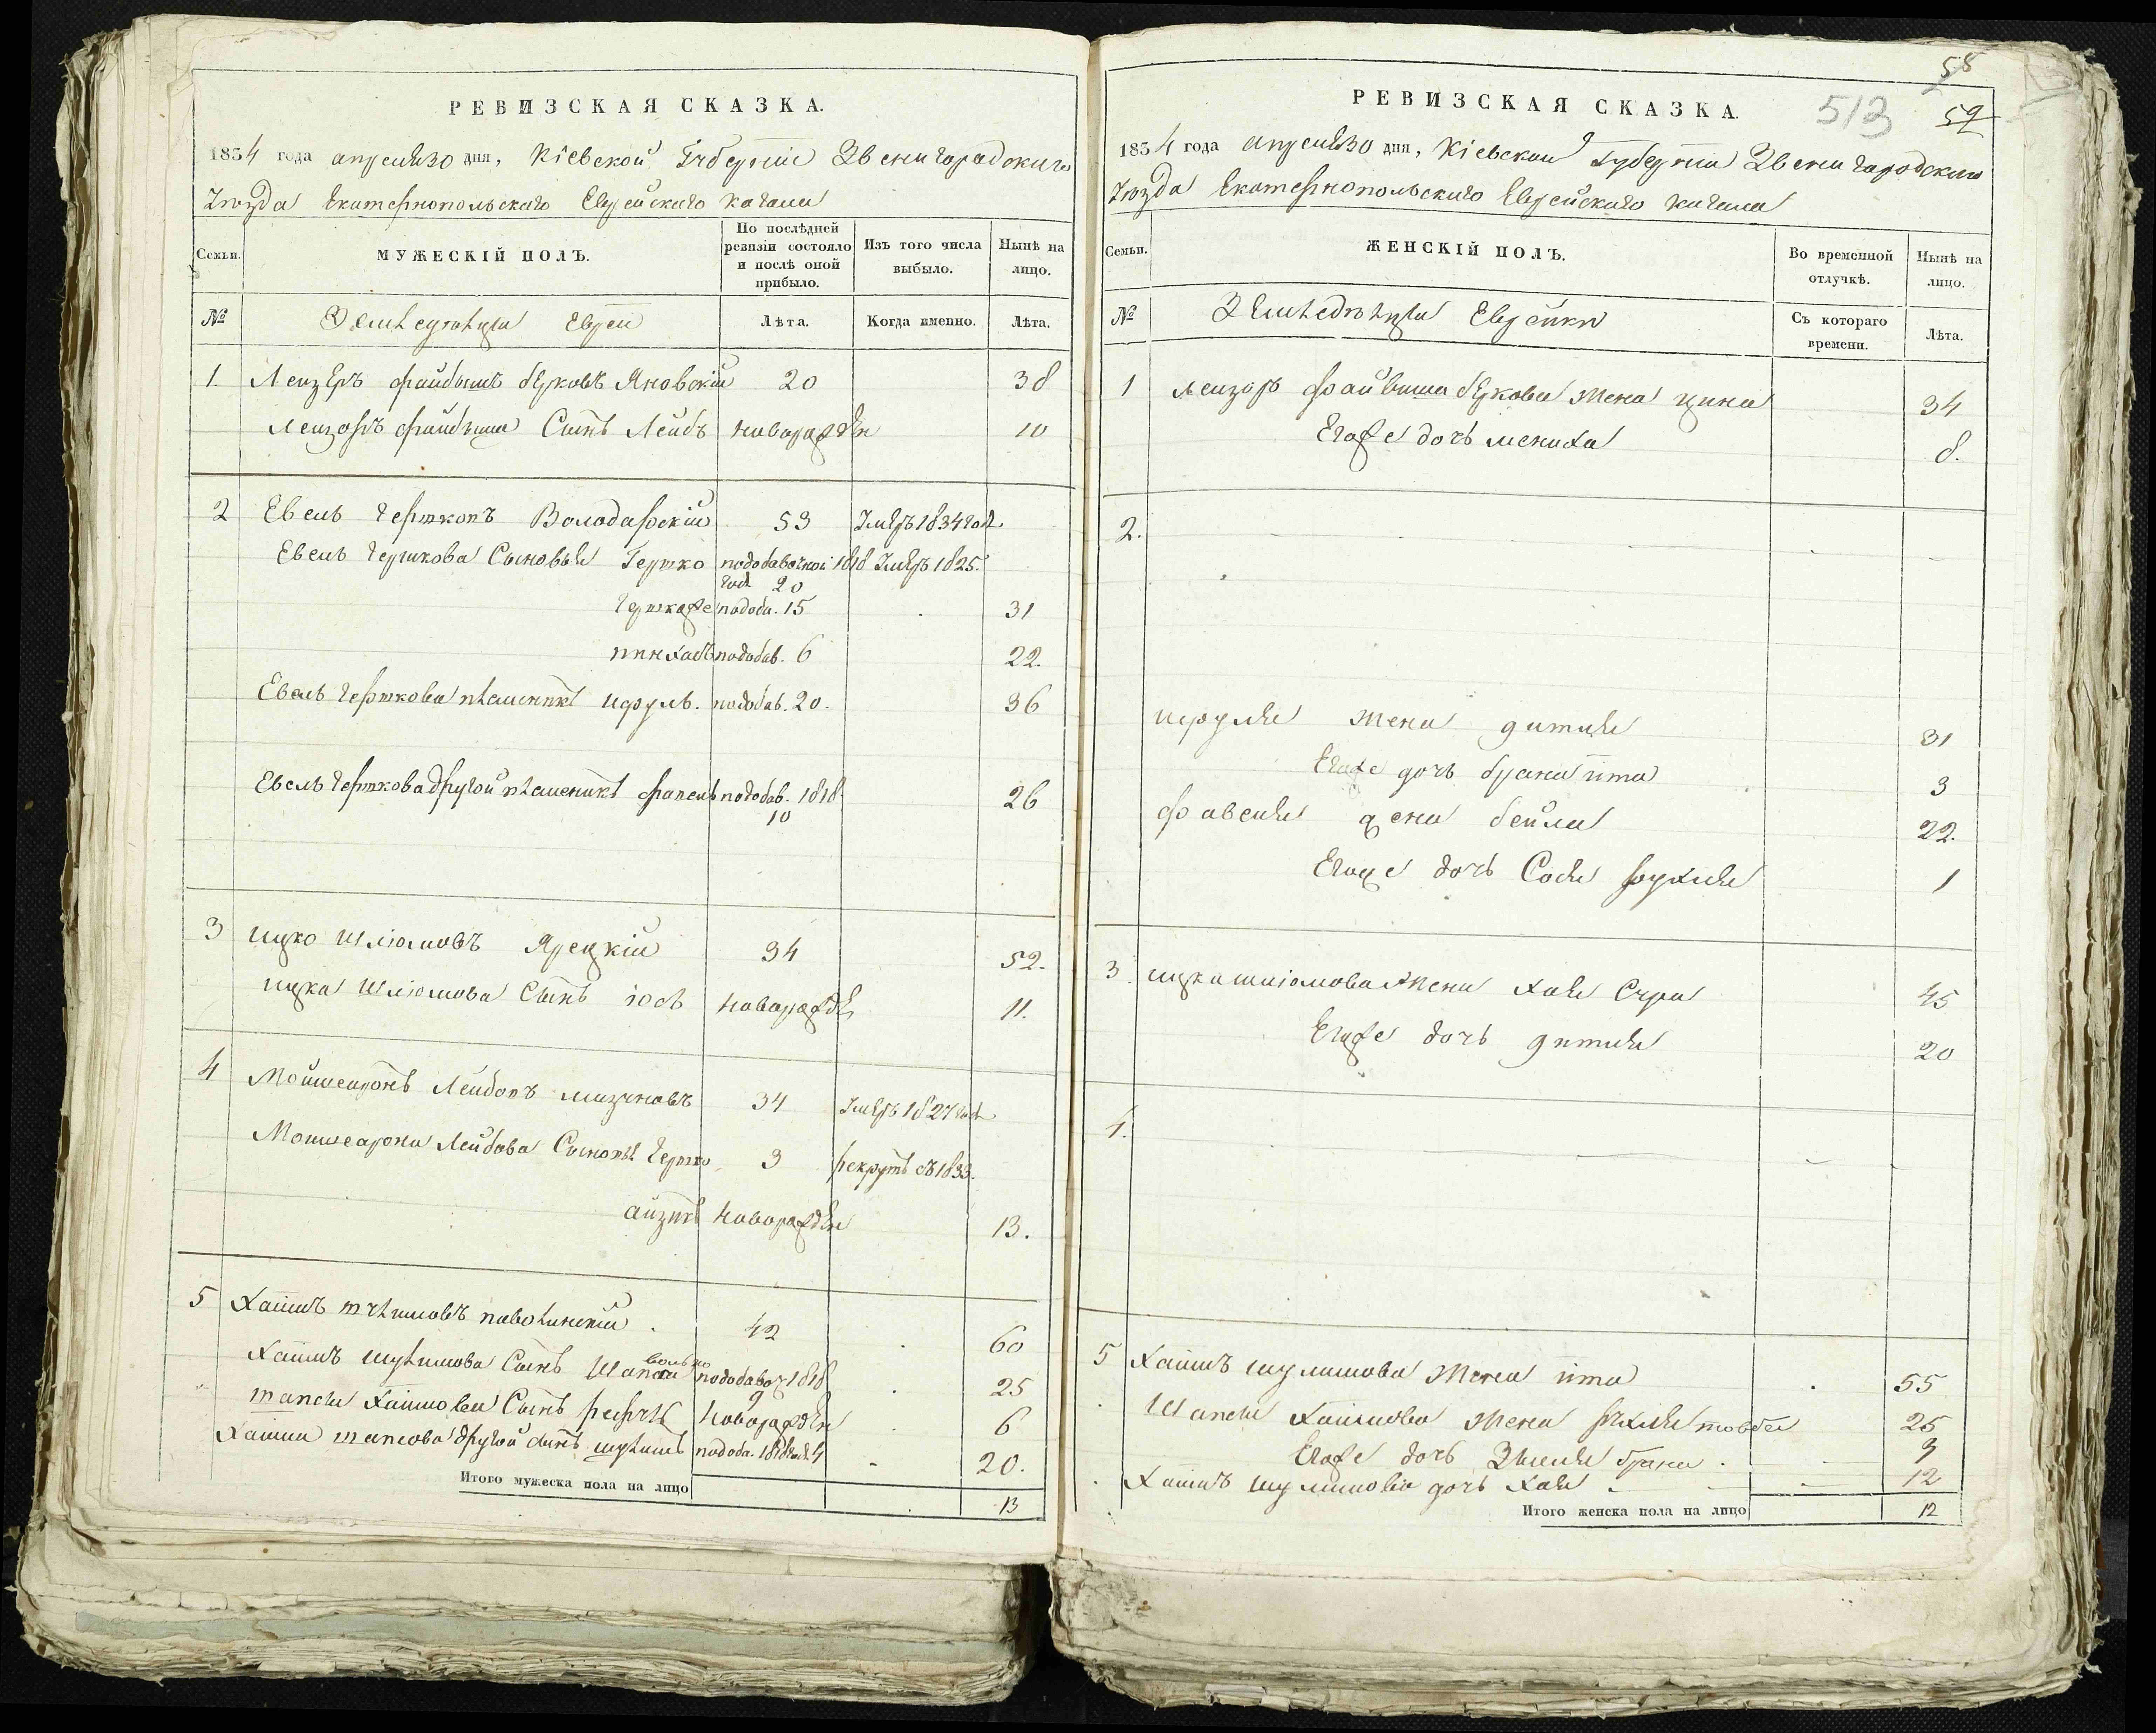 РЕВИЗСКАЯ СКАЗКА.
1834 года апреля 30 дня, Кіевской Губерніи Звенигородского
Уѣзда Екатеринопольского Еврейского кагала
Семьи.
МУЖЕСКІЙ ПОЛЪ.
По послѣдней ревизіи состояло и послѣ оной прибыло.
Изъ того числа выбыло.
Нынѣ на лицо.
№
Земледѣльцы Евреи
Лѣта.
Когда именно.
Лѣта.
1. Лейзеръ файбишъ берковъ Яновскій 20 38
Лейзоръ файбиша Сынъ Лейбъ новорожден 10
2 Евель Гершковъ Володарскій 53 Умеръ 1834 год.
Евель Гершкова Сыновья Гершко подобавочной 1818 Умеръ 1825.
год. 20
подоба. 15 31
пинхасъ подобав. 6 22.
Евель Гершкова племникъ подобав. 20. 36
Евель Гершкова другой племеникъ подобав. 1818 26
10
3 ицко Шліомовъ Ярецкій 34 52.
ицка Шліомова Сынъ іось новорожде 11.
4 Мойшеаронъ Лейбовъ 34 Умеръ 1827 год
Мошнеарона Лейбова Сыновья Гершко 3 рекрутъ съ 1833.
айзикъ новорожден 13.
5 Хаимъ 42 60
Хаимъ Сынъ подобавоч 1818 25
9
Хаимова Сынъ новорожден 6
Хаима другой сынъ подоба. 1818 год. 4 20.
Итого мужеска пола на лицо 13
58
513
59
РЕВИЗСКАЯ СКАЗКА.
1834 года апреля 30 дня, Кіевской Губерніи Звенигородского
Уѣзда Екатеринопольского Еврейского кагала
Семьи.
ЖЕНСКІЙ ПОЛЪ.
Во временной отлучкѣ.
Нынѣ на лицо.
№
Земледѣльцы Еврейки
Съ котораго времени.
Лѣта.
1 Лейзоръ файвиша беркова жена цина 34
Егоже дочь мениха 8.
2.
жена дитля 31
Егоже дочь брана ита 3
жена бейла 22.
Егоже дочь Сося рухля 1
3. ицка шліомова жена Хая Сура 45
Егоже дочь дитля 20
4.
5 Хаимъ шулимова жена ита 55
Хаимова жена рухля товба 25
Егоже дочь брана 3
Хаимъ шулимова дочь Хая 12
Итого женска пола на лицо 12